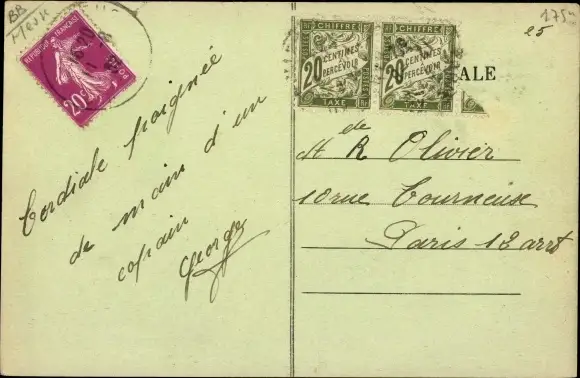 BB
275
25
REPUBLIQUE FRANÇAISE
20c
CHIFFRE
20 CENTIMES À PERCEVOIR
TAXE
CHIFFRE
20 CENTIMES À PERCEVOIR
TAXE
ALE
Cordiale poignée
de main d'un
copain
Georges
de
M R Olivier
10 rue Tourneux
Paris 12 arrt